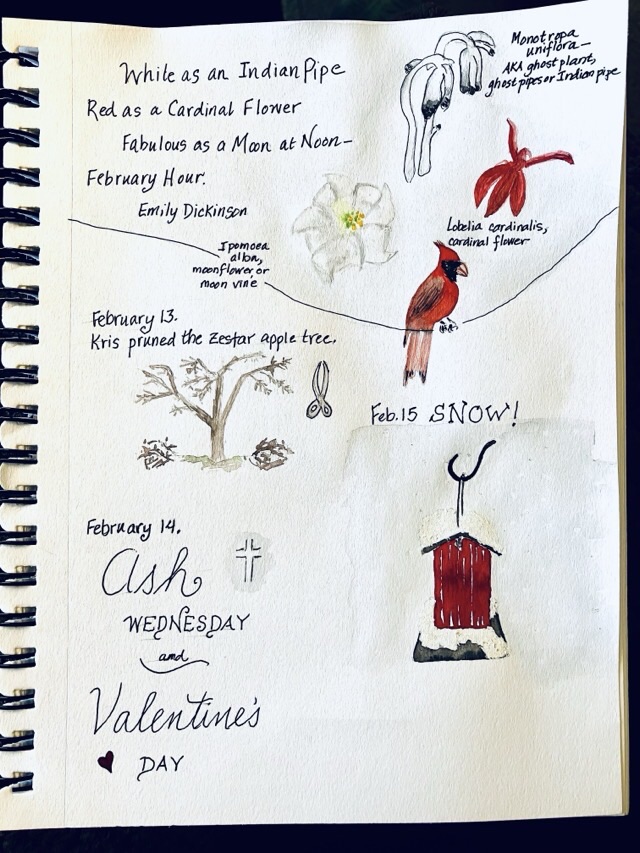 White as an Indian Pipe
Red as a Cardinal Flower
Fabulous as a Moon at Noon–
February Hour.
Emily Dickinson
Monotropa
uniflora—
AKA ghost plant,
ghost pipes or Indian pipe
Lobelia cardinalis,
cardinal flower
Ipomoea
alba,
moonflower, or
moon vine
February 13.
Kris pruned the Zestar apple tree.
Feb. 15 SNOW!
February 14.
Ash
WEDNESDAY
and
Valentine's
DAY